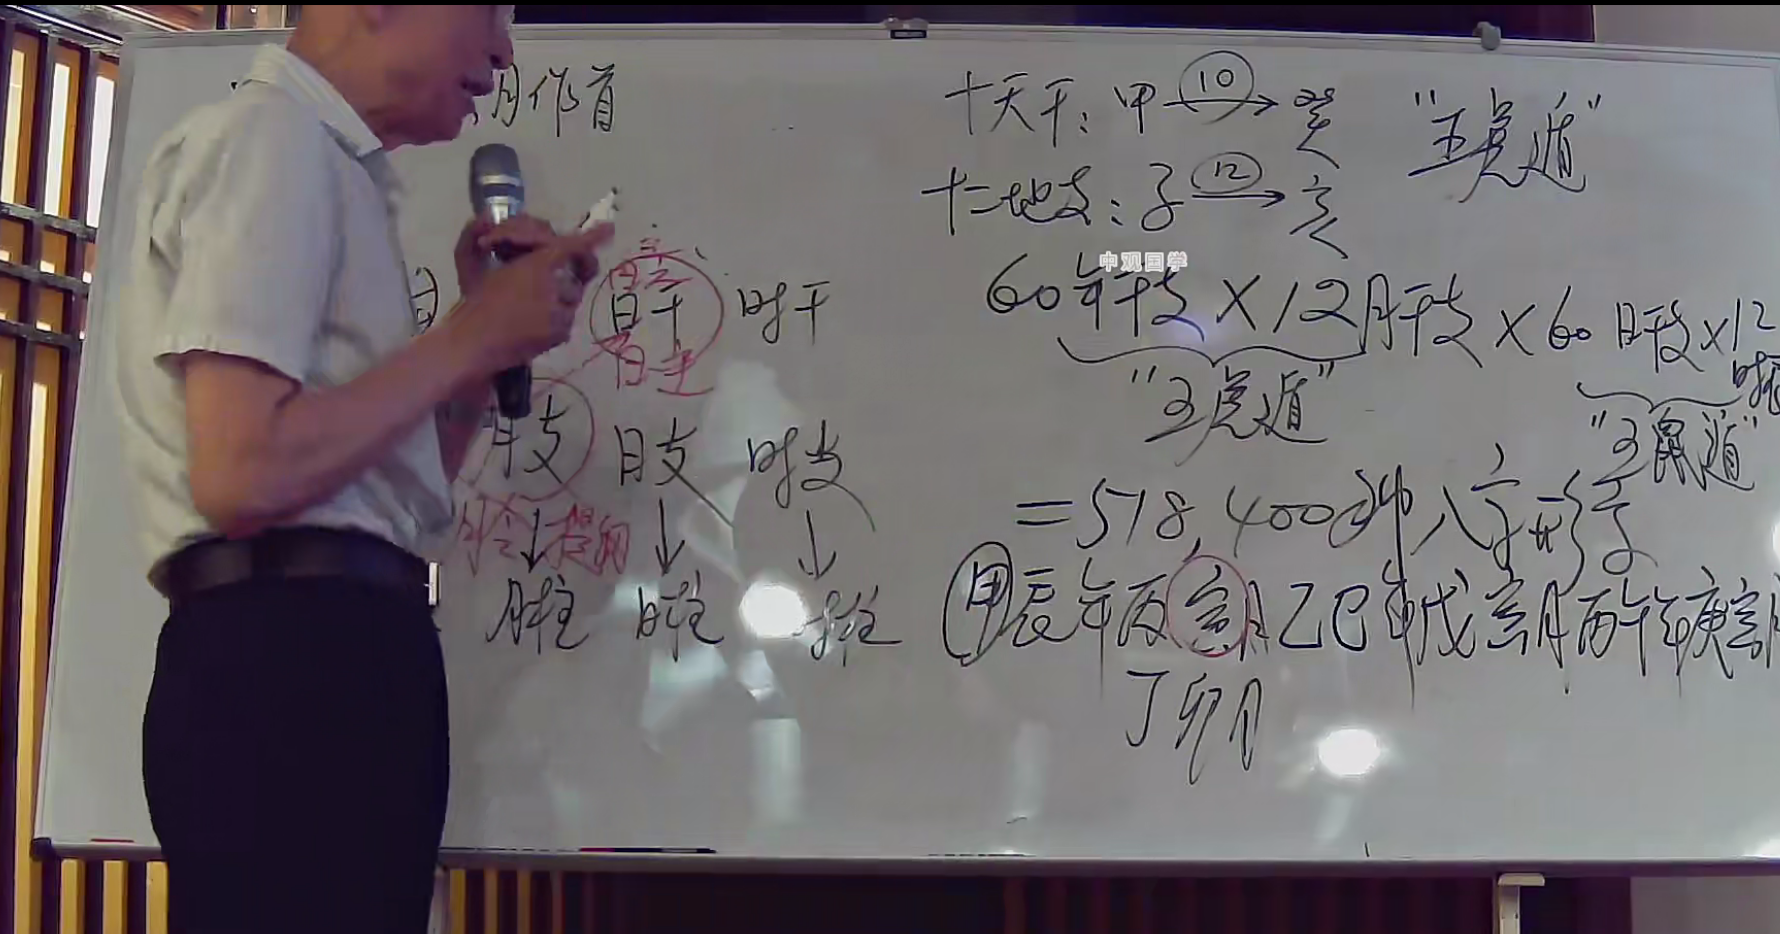 月作首
十天干：甲 10 → 癸
"五虎遁"
十二地支：子 12 → 亥
中观国学
60年干支×12月干支×60日干支×12
时
"五虎遁"
"五鼠遁"
=518,400种八字形
甲辰年丙寅月乙巳年戊寅月丙午年庚寅月
丁卯月
日主
日干 时干
日主
月支 日支 时支
月令 提纲
月柱 日柱 时柱